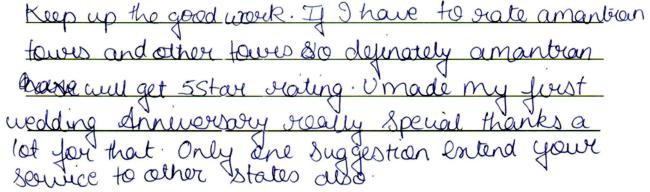 Keep up the good work. If I have to rate amantran
tours and other tours so definately amantran
will get 5Star rating. U made my first
wedding Anniversary really special thanks a
lot for that. Only one suggestion extend your
service to other states also.